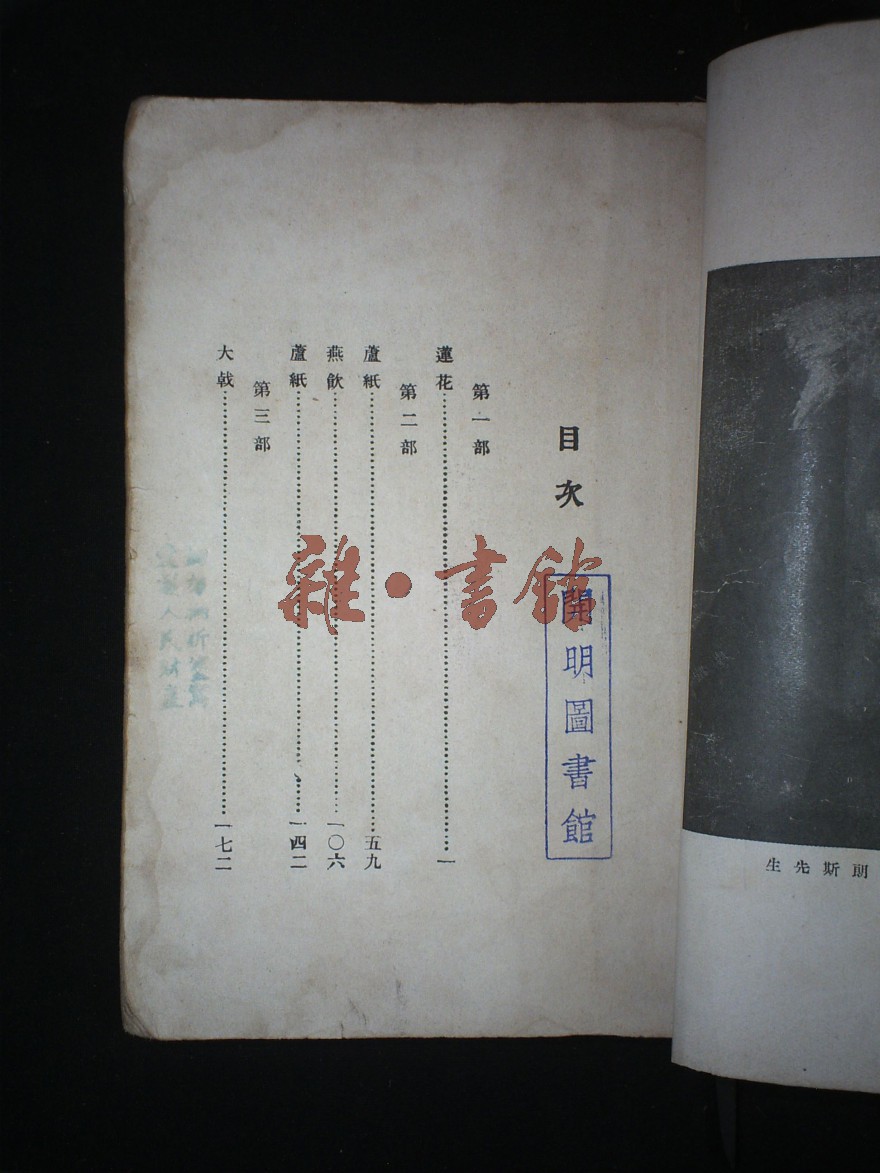 朗斯先生
目次
開明圖書館
第一部
蓮花……一
第二部
蘆紙……五九
燕飲……一〇六
蘆紙……一四二
第三部
大戟……一七二
雜·書館
人民財產